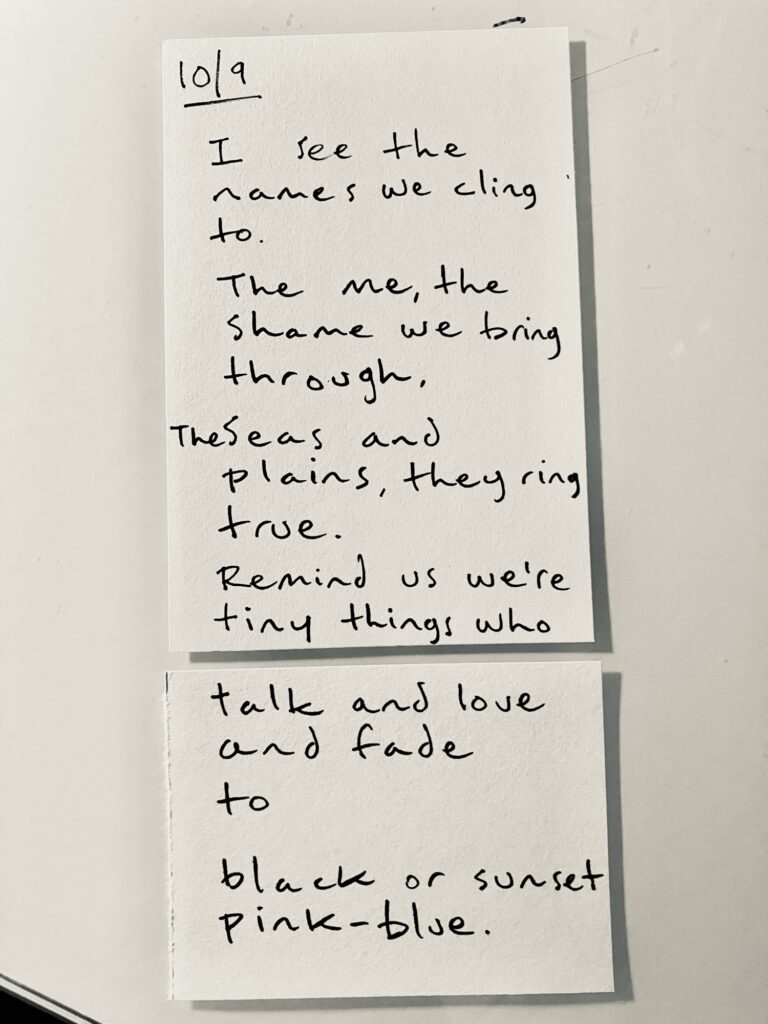 10/9
I see the
names we cling
to.
The me, the
shame we bring
through.
The Seas and
plains, they ring
true.
Remind us we're
tiny things who
talk and love
and fade
to
black or sunset
pink-blue.